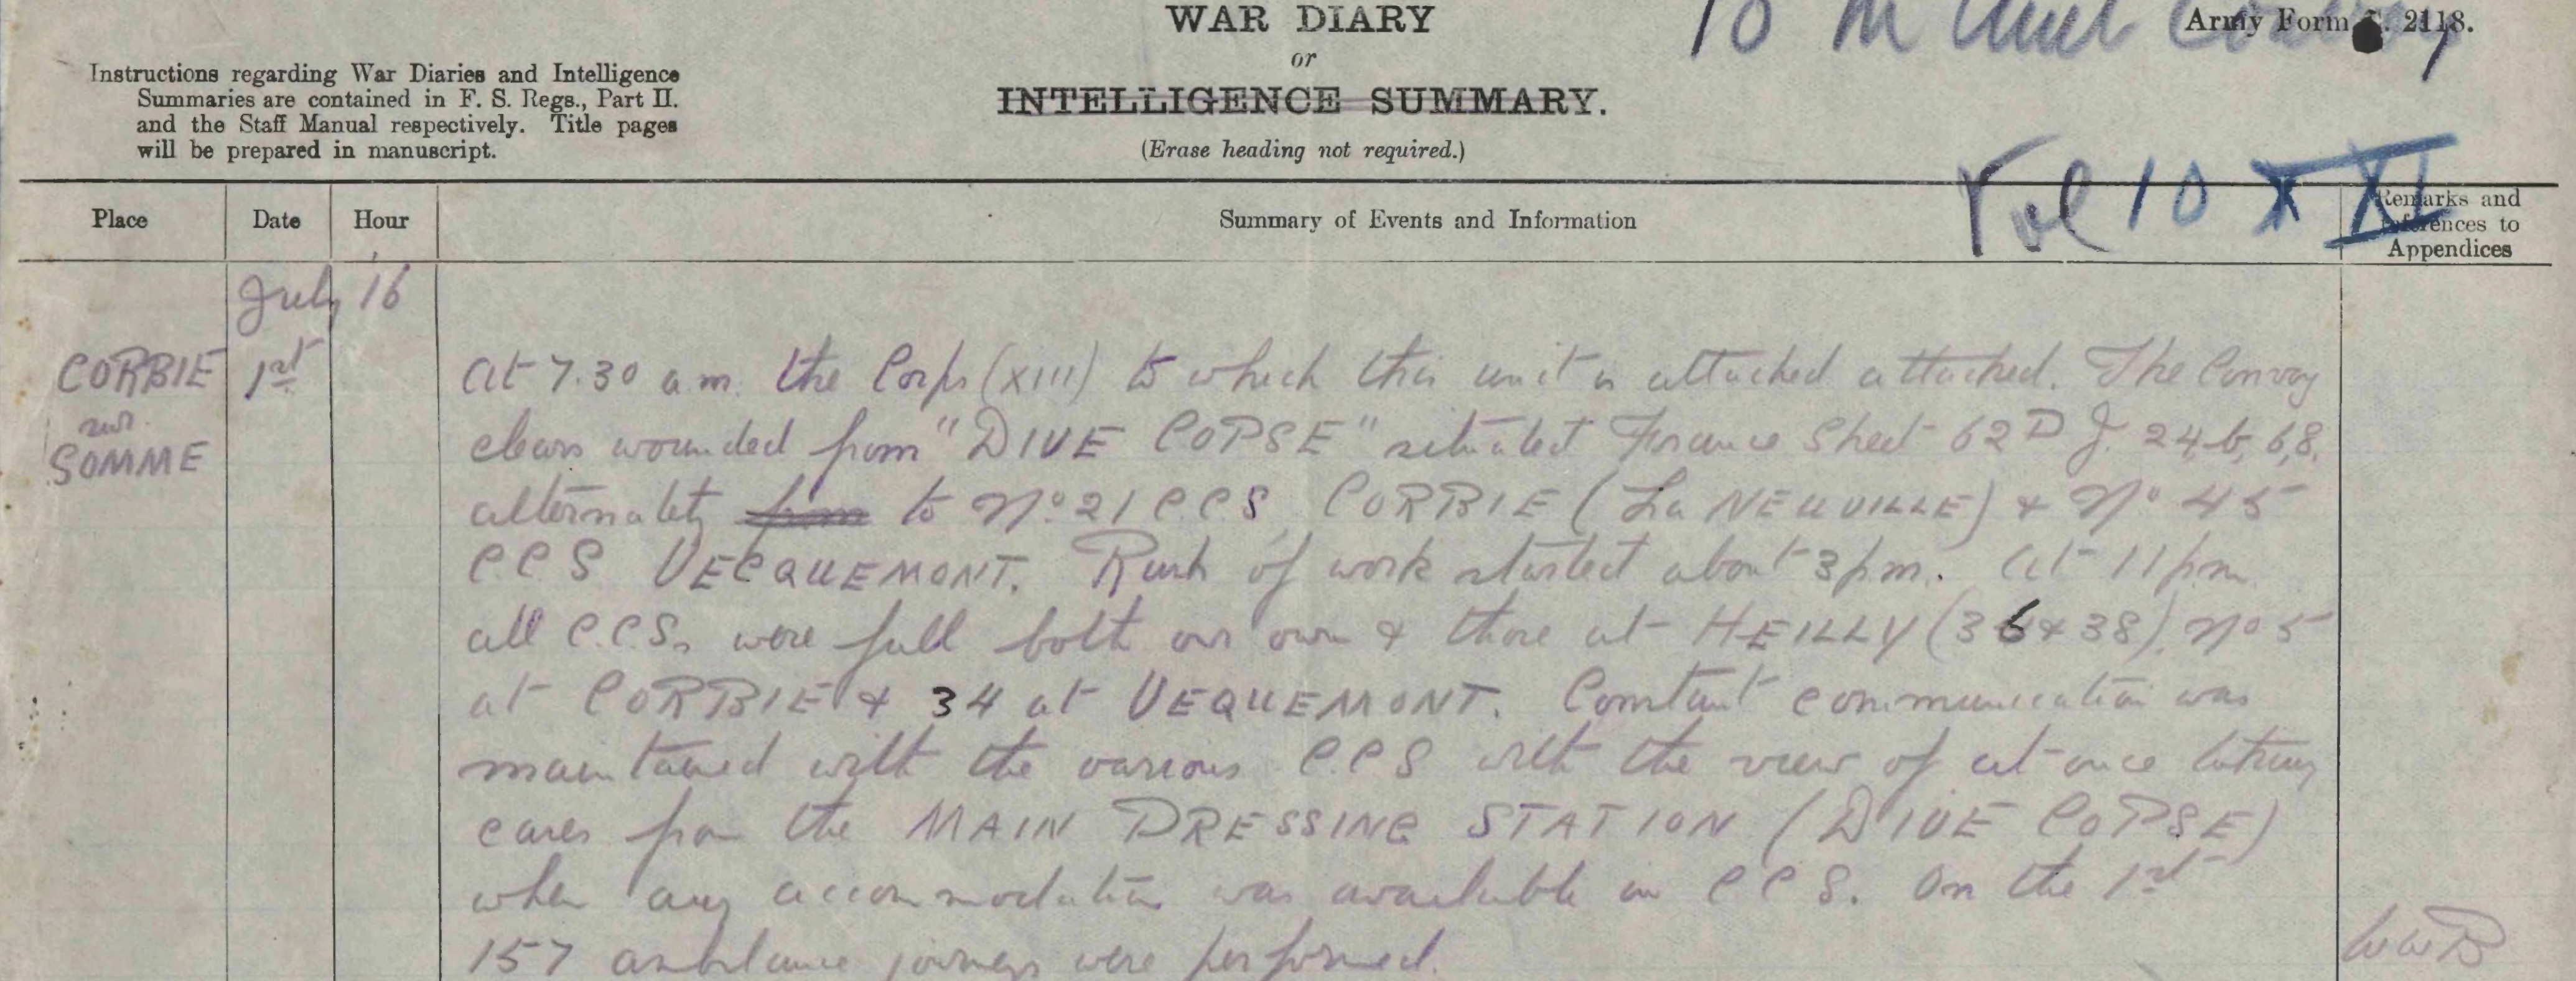 WAR DIARY
or
INTELLIGENCE SUMMARY.
(Erase heading not required.)
Army Form C. 2118.
Instructions regarding War Diaries and Intelligence
Summaries are contained in F. S. Regs., Part II.
and the Staff Manual respectively. Title pages
will be prepared in manuscript.
10 M Amb Convoy
Vol 10 X XI
Place Date Hour Summary of Events and Information Remarks and References to Appendices
July 16
CORBIE
sur
SOMME
1st
At 7.30 a.m. the Corps (XIII) to which this unit is attached attacked. The Convoy
clears wounded from "DIVE COPSE" situated France Sheet 62D J. 24,b, 6,8,
alternately from to No 21 C.C.S CORBIE (La NEUVILLE) & No 45
C.C.S VECQUEMONT. Rush of work started about 3 pm. At 11 pm
all C.C.S. were full both our own & those at HEILLY (36 & 38), No 5
at CORBIE & 34 at VEQUEMONT. Constant communication was
maintained with the various C.C.S with the view of at once
cases from the MAIN DRESSING STATION (DIVE COPSE)
when any accommodation was available in C C S. On the 1st
157 ambulance journeys were performed.
WWB